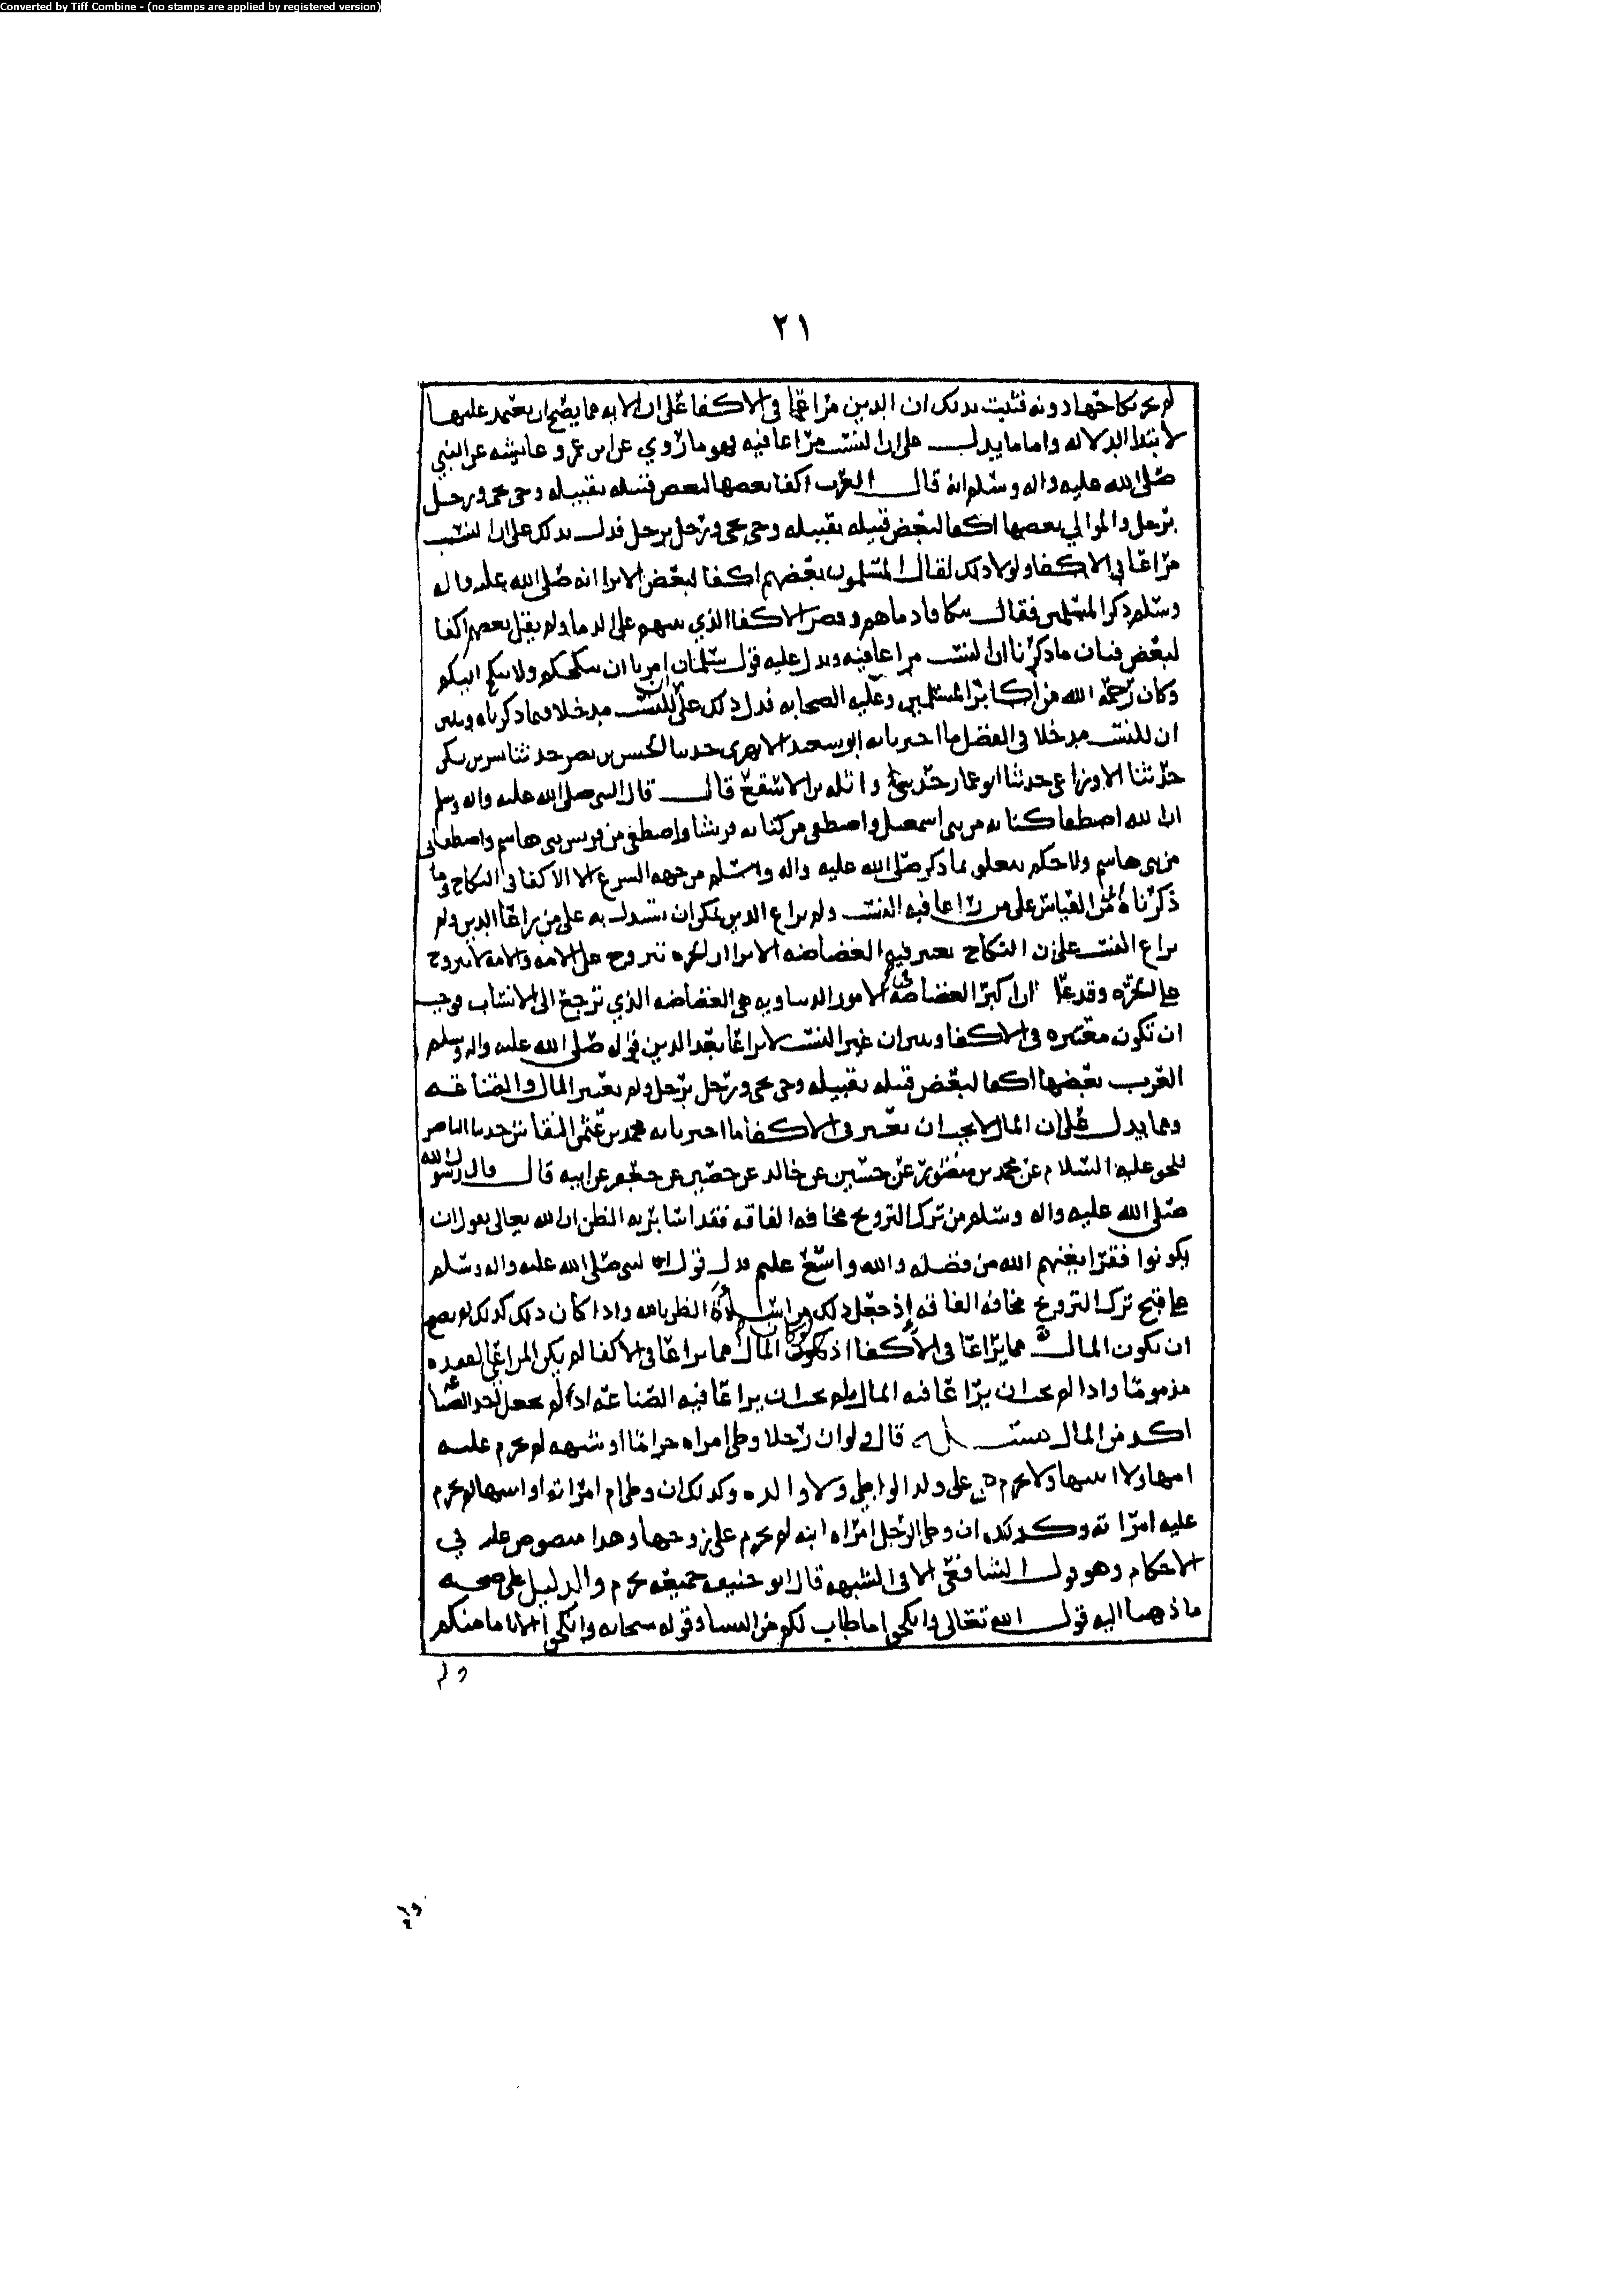 Converted by Tiff Combine - (no stamps are applied by registered version)
٢١
لم يجز نكاحها دونه فثبت بذلك ان الدين مراعا في الاكفا على ان الايه مما يصح ان يعتمد عليها
لابتدا الدلاله واما ما يدل على ان النسب مراعا فيه فهو ما روي عن ابن عمر وعايشه عن النبي
صلى الله عليه واله وسلم انه قال العرب اكفا بعضها لبعض قبيله بقبيله وحي بحي ورجل
برجل والموالي بعضها اكفا لبعض قبيله بقبيله وحي بحي ورجل برجل فدل بذلك على ان النسب
مراعا في الاكفا ولولا ذلك لقال المسلمون بعضهم اكفا لبعض الا ترا انه صلى الله عليه واله
وسلم ذكر المسلمين فقال تتكافا دماهم وقصر الاكفا الذي بينهم على الدما ولم يقل بعضهم اكفا
لبعض فبان ما ذكرنا ان النسب مراعا فيه ويدل عليه قول سلمان امرنا ان ننكحكم ولا ننكح اليكم
وكان رحمة الله من اكابر المسلمين وعليه الصحابه فدل ذلك على ان للنسب مدخلا فيما ذكرناه ويبين
ان للنسب مدخلا في الفضل ما اخبرنا به ابو سعيد الابهري حدثنا الحسن بن نصر حدثنا بشر بن بكر
حدثنا الاوزاعي حدثنا ابو عمار حدثني واثله بن الاسقع قال قال النبي صلى الله عليه واله وسلم
ان الله اصطفا كنانه من بني اسمعيل واصطفى من كنانه قريشا واصطفى من قريس بني هاسم واصطفاني
من بني هاسم ولا حكم يتعلق بما ذكر صلى الله عليه واله وسلم من جهة السرع الا الاكفا في النكاح وما
ذكرناه من القياس على من راعا فيه النسب ولم يراع الدين يمكن ان يستدل به على من يراعا الدين ولم
يراع النسب على ان النكاح يعتبر فيه الغضاضه الا ترا ان الحره تتزوج على الامه والامه لا تتزوج
على الحره وقد علما ان اكبر الغضاضه في الامور الدنياويه هي الغضاضه الذي ترجع الى الانساب فوجب
ان تكون معتبره في الاكفا ويبين ان غير النسب لا يراعا بعد الدين قوله صلى الله عليه واله وسلم
العرب بعضها اكفا لبعض قبيله بقبيله وحي بحي ورجل برجل ولم يعتبر المال والصناعه
ومما يدل على ان المال لا يجب ان يعتبر في الاكفا ما اخبرنا به محمد بن عثمن النقاش حدثنا الناصر
للحق عليه السلام عن محمد بن منصور عن حسين عن خالد عن حصين عن جعفر عن ابيه قال قال رسول الله
صلى الله عليه واله وسلم من ترك التزويج مخافة الفاقه فقد اسا بربه الظن ان الله تعالى يقول ان
يكونوا فقرا يغنهم الله من فضله والله واسع عليم فدل قول النبي صلى الله عليه واله وسلم
على قبح ترك التزويج مخافه الفاقه اذ جعل ذلك من اساءة الظن بالله واذا كان ذلك كذلك لم يصح
ان تكون المال مما يراعا في الاكفا اذ لو كان المال مما يراعا في الاكفا لم يكن المراعي لفقده
مذموما واذا لم يجب ان يراعا فيه المال فلم يجب ان يراعا فيه الصناعه اذ لم يجعل احد الصناعه
اكد من المال مسئله قال ولو ان رجلا وطى امراه حراما او شبهه لم يحرم عليه
امها ولا ابنتها ولا تحرم هي على ولد الواطي ولا والده وكذلك ان وطى ام امراته او ابنتها لم تحرم
عليه امراته وكذلك ان وطى الرجل امراه ابنه لم تحرم على زوجها وهدا منصوص عليه في
الاحكام وهو قول الشافعي الا في الشبهه قال ابو حنيفه جميعه يحرم والدليل على صحه
ما ذهبنا اليه قول الله تعالى وانكحوا ما طاب لكم من النسا وقوله سبحانه وانكحوا الاياما منكم
ولم